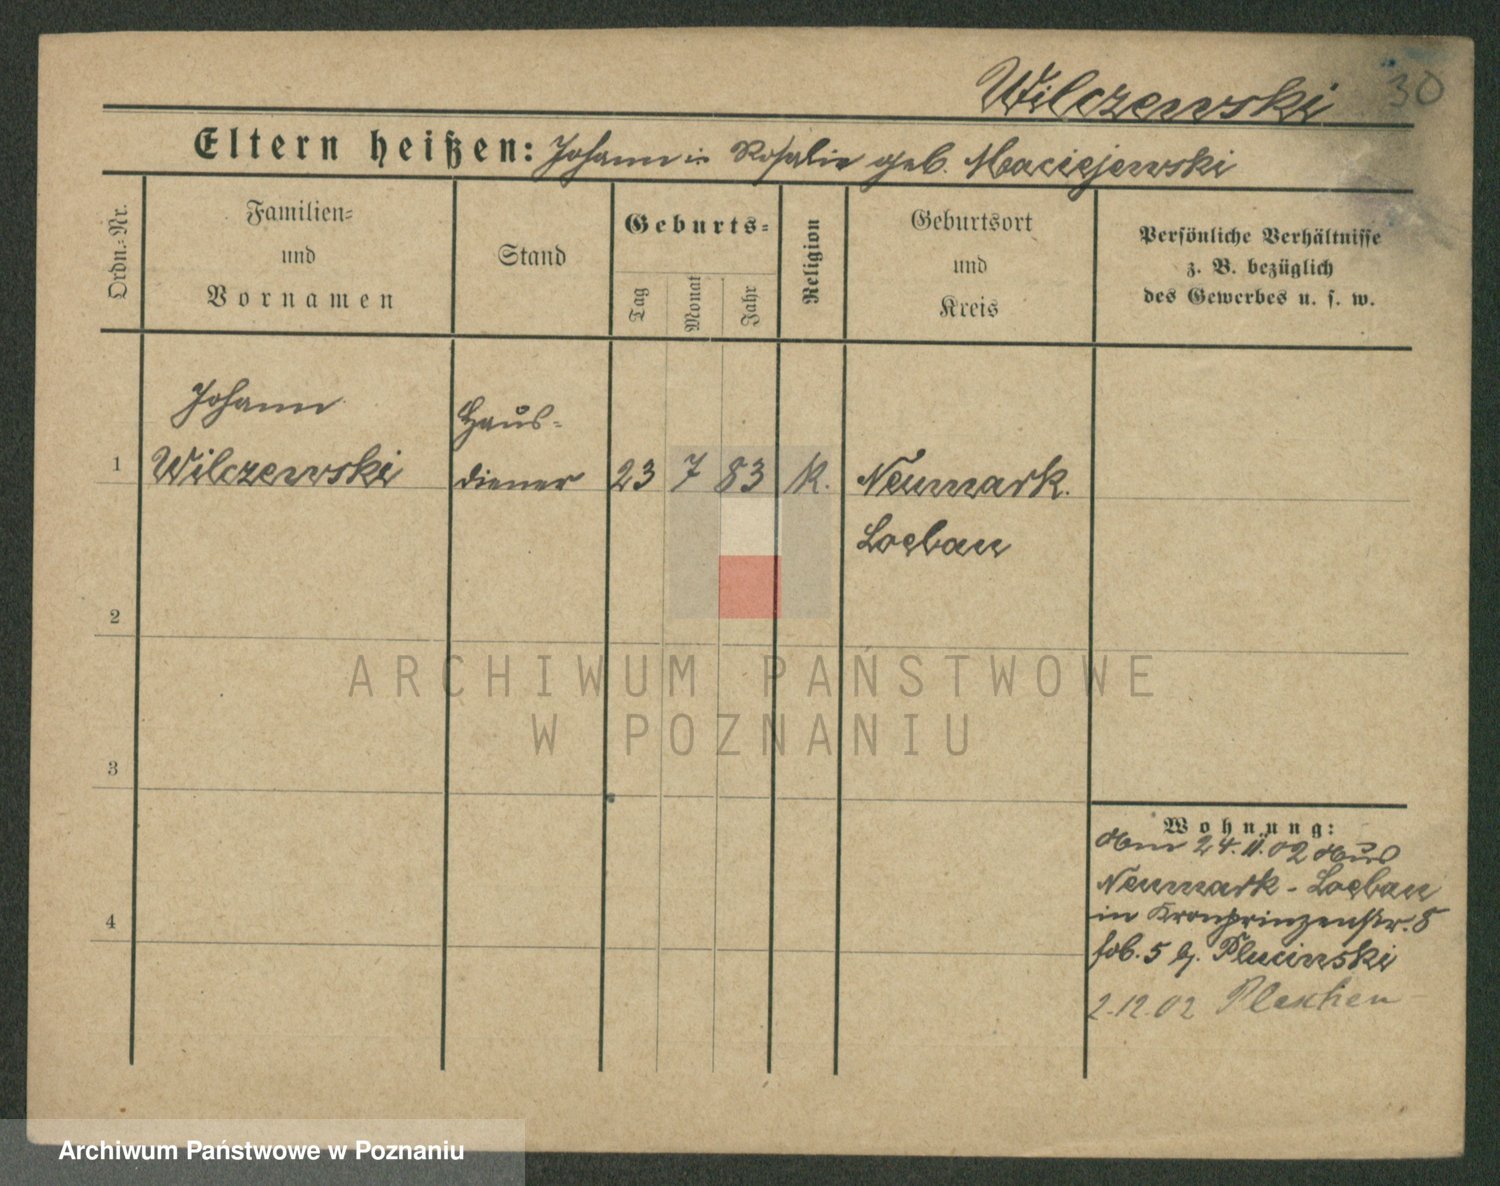 Wilczewski 30
Eltern heißen: Johann u Rosalie geb. Maciejewski
Ordn.-Nr.
Familien-
und
Vornamen
Stand
Geburts-
Tag
Monat
Jahr
Religion
Geburtsort
und
Kreis
Persönliche Verhältnisse
z. B. bezüglich
des Gewerbes u. s. w.
Johann
Haus-
1 Wilczewski diener 23 7 83 K. Neumark.
Loebau
2
ARCHIWUM PAŃSTWOWE
W POZNANIU
3
Wohnung:
Am 24.11.02 aus
Neumark - Loebau
4 in Kronprinzenstr. 8
5 b. Plucinski
2.12.02 Pleschen
Archiwum Państwowe w Poznaniu